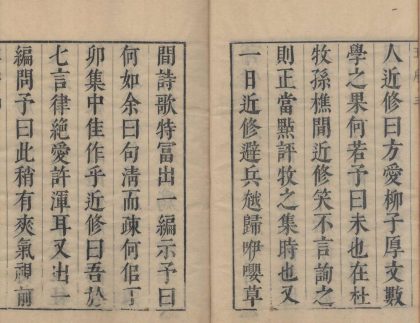 人近修曰方愛柳子厚文數
學之果何若予曰未也在杜
牧孫樵間近修笑不言詢之
則正當點評牧之集時也又
一日近修避兵䖍歸咿嚶草
間詩歌特富出一編示予曰
何如余曰句淸而疎何但丁
卯集中佳作乎近修曰吾於
七言律絶愛許渾耳又出一
編問予曰此稍有爽氣視前